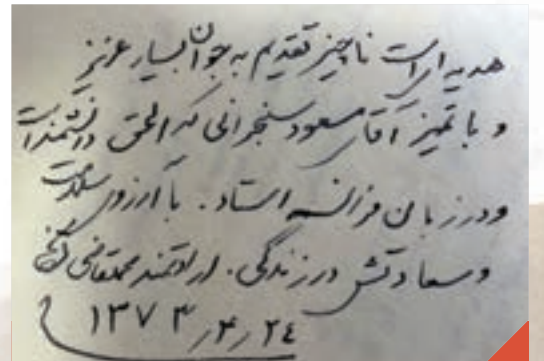 هدیه ای است ناچیز تقدیم به جوان بسیار عزیز
و با تمیز آقای مسعود سنجرانی که الحق دانشمند است
و در زبان فرانسه استاد. با آرزوی سلامت
و سعادتش در زندگی. ارادتمند محمد قاضی
۱۳۷۳٫۴٫۲۴